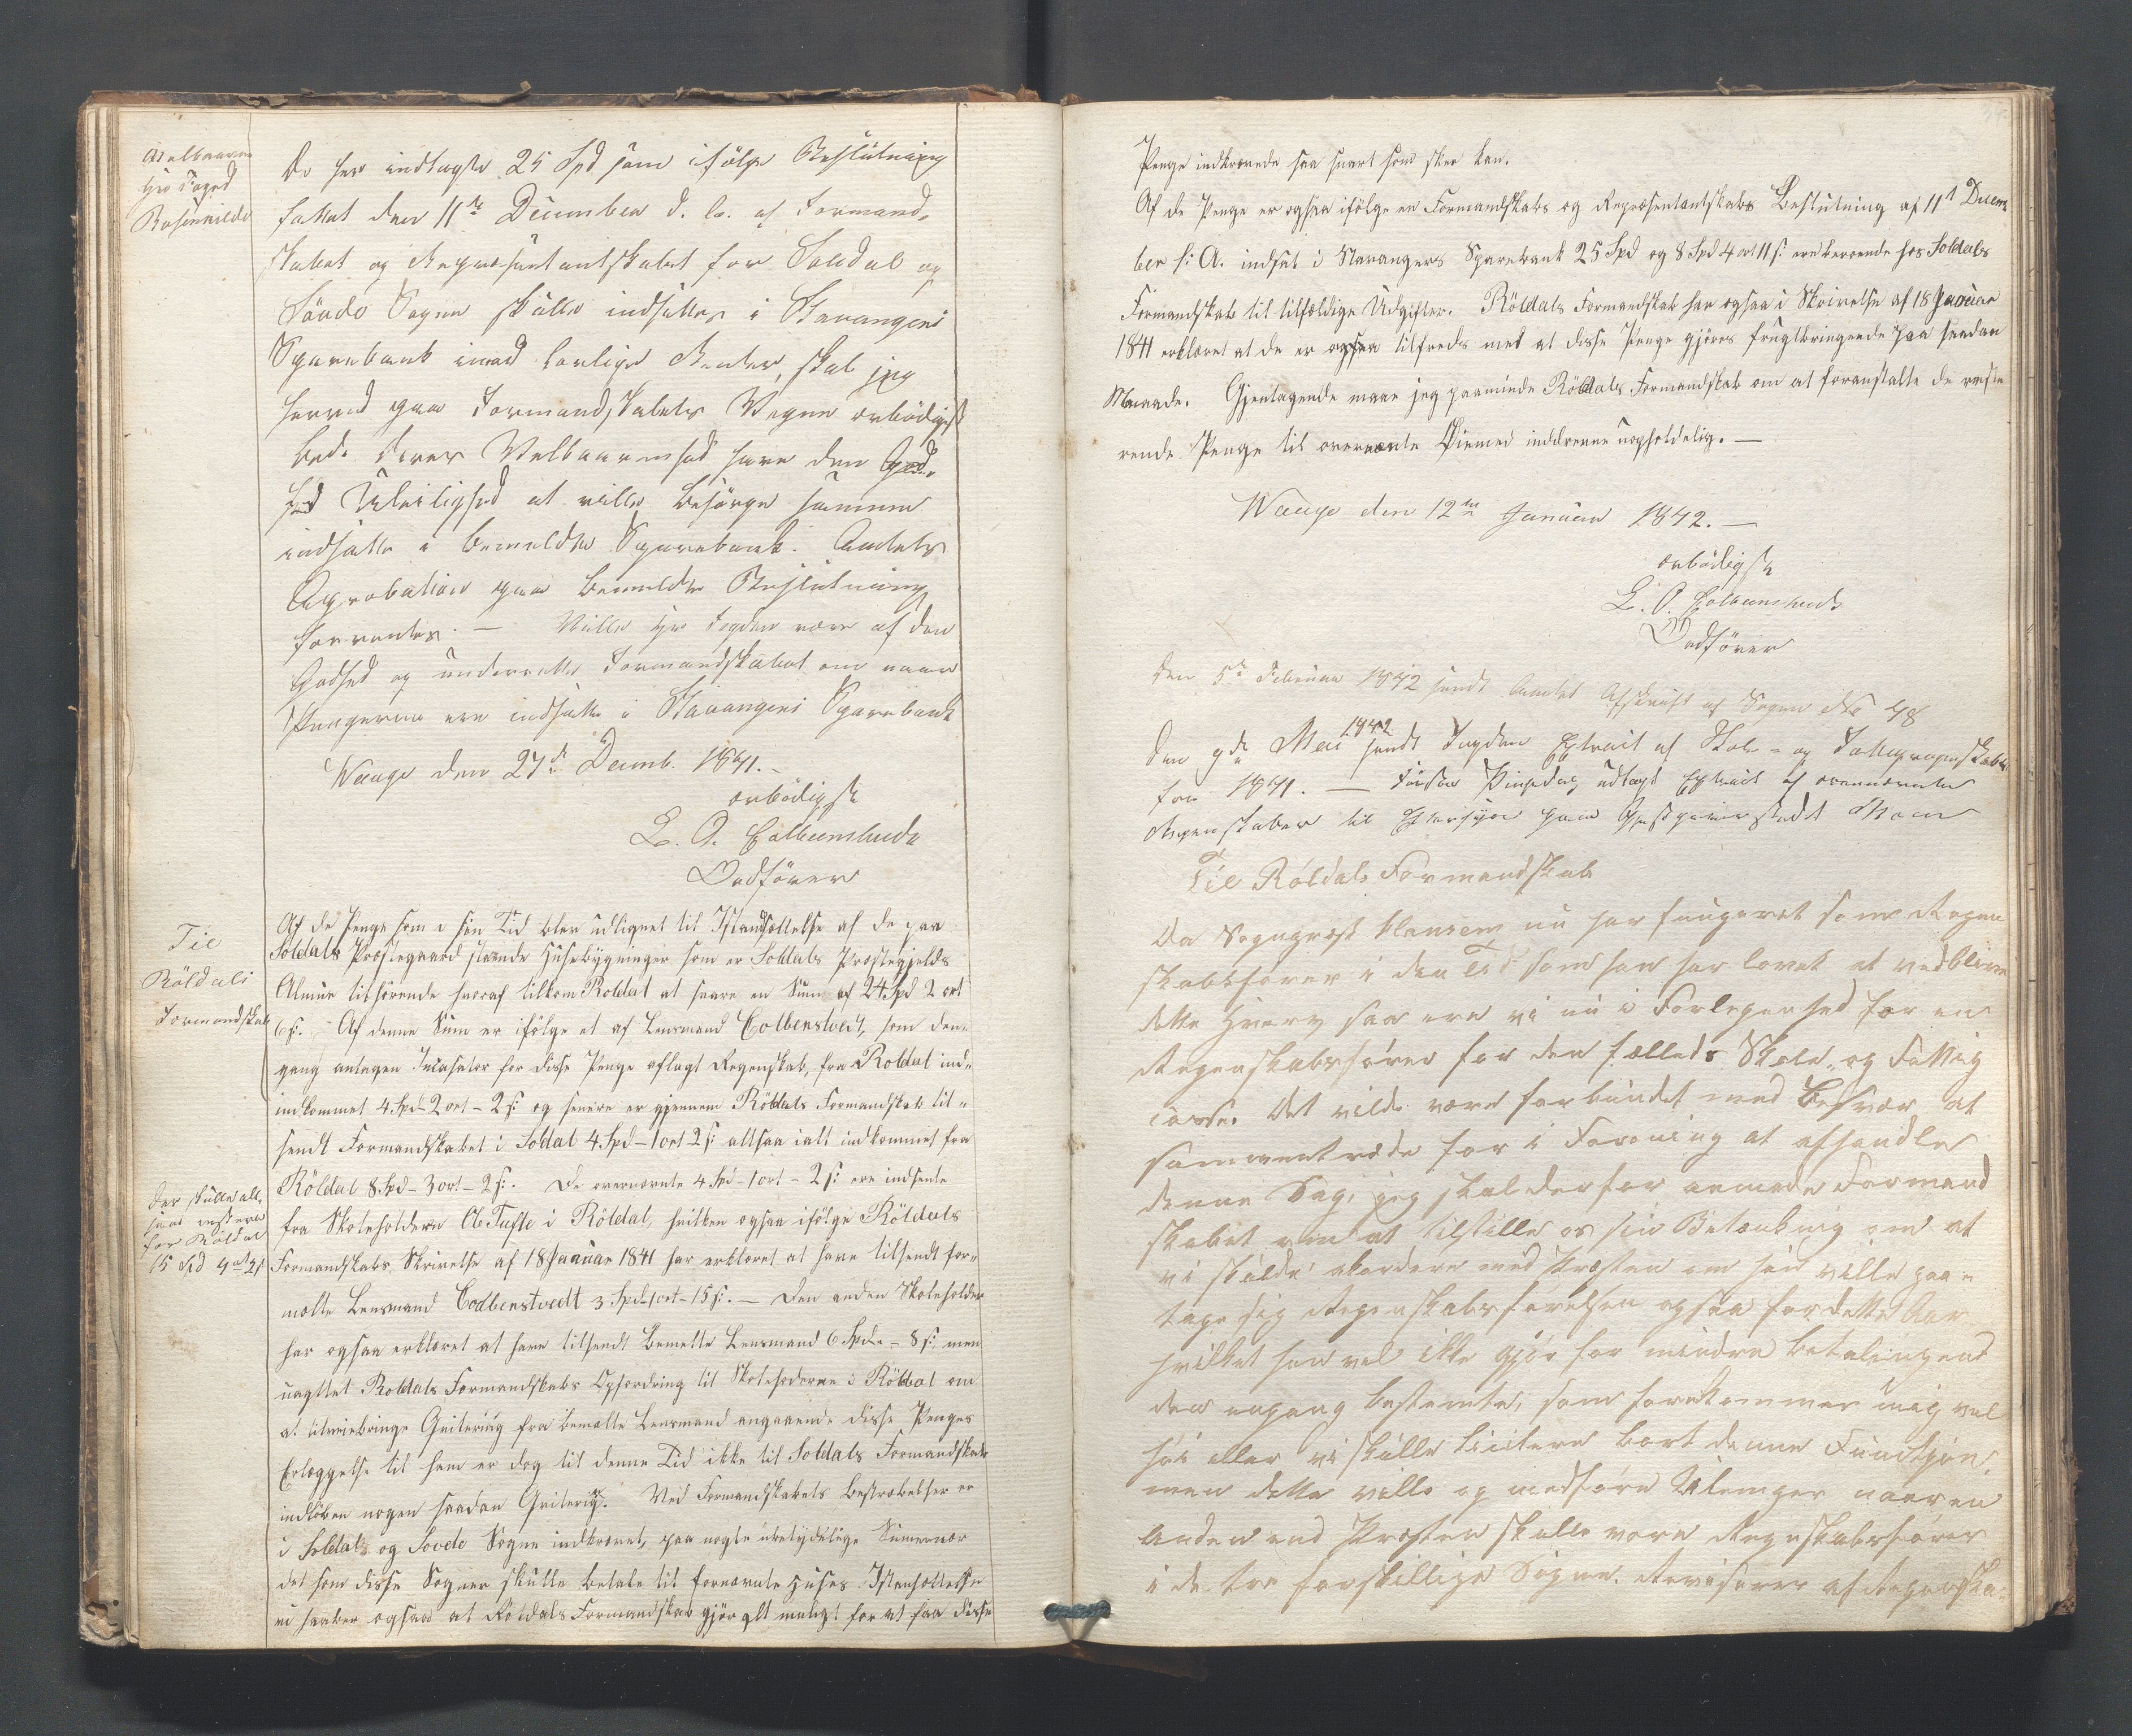 Velbaarne
Hr Foged
Rosenkilde
De her indlagte 25 Spd som ifölge Beslutning
fattet den 11te December d. A. af Formand-
skabet og Repræsentantskabet for Soledal og
Sövde Sogne skulle indsættes i Stavangers
Sparebank imod lovlige Renter, skal jeg
herved paa Formandskabets Vegne ærbödigst
bede Deres Velbaarenhed have den God-
hed Uleilighed at ville besörge samme
indsatte i bemeldte Sparebank. Amtets
Aprobation paa bemeldte Beslutning
forventes. — Ville Hr Fogden være af den
Godhed og underrette Formandskabet om naar
Pengerne ere indsatte i Stavangers Sparebank
Waage den 27de Decemb. 1841. —
ærbödigst
L. O. Colbenstvedt
Ordförer
Til
Röldals
Formandskab
Af de Penge som i sin Tid blev udlignet til Istandsættelse af de paa
Soldals Præstegaard staaende Husebygninger som er Soldals Præstegjelds
Almue tilhörende hvoraf tilkom Roldal at svare en Sum af 24 Spd 2 ort
6 s. – Af denne Sum er ifölge et af Lensmand Colbenstvedt, som den-
gang antagen Incasator for disse Penge aflagt Regenskab, fra Roldal ind-
indkommet 4 Spd – 2 ort – 2 s: og senere er gjennem Röldals Formandskab til-
sendt Formandskabet i Soldal 4 Spd – 1 ort 2 s: altsaa ialt indkommet fra
Röldal 8 Spd – 3 ort – 2 s:. De overnævnte 4 Spd – 1 ort – 2 s: ere indsente
fra Skoleholderen Ole Tufte i Röldal, hvilken ogsaa ifölge Röldals
Formandskabs Skrivelse af 18 Januar 1841 har erklæret at have tilsendt for-
melte Lensmand Codbenstvedt 3 Spd – 1 ort – 15 s:. — Den anden Skoleholder
har ogsaa erklæret at have tilsendt bemelte Lensmand 6 Spd – 8 s: men
uagttet Roldals Formandskabs Opfordring til Skoleholderne i Röldal om
at tilveiebringe Qvitering fra bemelte Lensmand angaaende disse Penges
Erlæggelse til ham er dog til denne Tid ikke til Soldals Formandskab
indlöben nogen saadan Qvitering. Ved Formandskabets Bestræbelser er
i Soldals og Sovde Sogne indkrævet, paa nogle ubetydelige Summer nær
det som disse Sogner skulle betale til fornævnte Huses Istansættelse
vi haaber ogsaa at Röldals Formandskab gjör alt muligt for at faa disse
der skulle alt-
saa restere
for Röldal
15 Spd 4 ort 4 s
Penge indkrævede saa snart som skee kan.
Af de Penge er ogsaa ifölge en Formandskabs og Repræsentantskabs Beslutning af 11t Decem
ber f: A. indsat i Stavangers Sparebank 25 Spd og 8 Spd 4 ort 11 s: ere beroende hos Soldals
Formandskab til tilfældige Udgifter. Röldals Formandskab har ogsaa i Skrivelse af 18 Januar
1841 erklæret at de er ogsaa tilfreds med at disse Penge gjöres frugtbringende paa saadan
Maaade. Gjentagende maae jeg paaminde Röldals Formandskab om at foranstalte de reste
rende Penge til overnævnte Öiemed inddrevne uopholdelig. —
Waage den 12te Januar 1842. —
ærbödigst
L. O. Colbenstvedt
Ordförer
Den 5te Februar 1842 sendt Amtet Afskrift af Sagen No 48
Den 9de Mai 1842 sendt Fogden Extract af Skole- og Fattigregenskaber
for 1841. — udlagt Extract af overnævnte
Regenskaber til Eftersyn paa Gjestgiverstedet
Til Röldals Formandskab
Da Sogneprest Clausem nu har fungeret som Regen
skabsförer i den Tid som han har lovet at vedblive
dette Hverv saa ere vi nu i Forlegenhed for en
Regenskabsförer for den fælleds Skole- og Fattig
casse. Det vilde være forbundet med Besvær at
sammentræde for i Forening at afhandle
denne Sag, jeg skal derfor anmode Formand
skabet om at tilstille os sin Betænkning om at
vi skulde akordere med Præsten om han ville paa-
tage sig Regenskabsförelsen ogsaa for dette Aar
hvilket han vel ikke gjör for mindre Betaling end
den engang bestemte, som forekommer mig vel
höi eller vi skulle licitere bort denne Functjon,
men dette ville og medföre Ulemper naar en
Anden end Præsten skulle være Regnskabsförer
i de tre forskillige Sogne. Revisorer af Regenska-